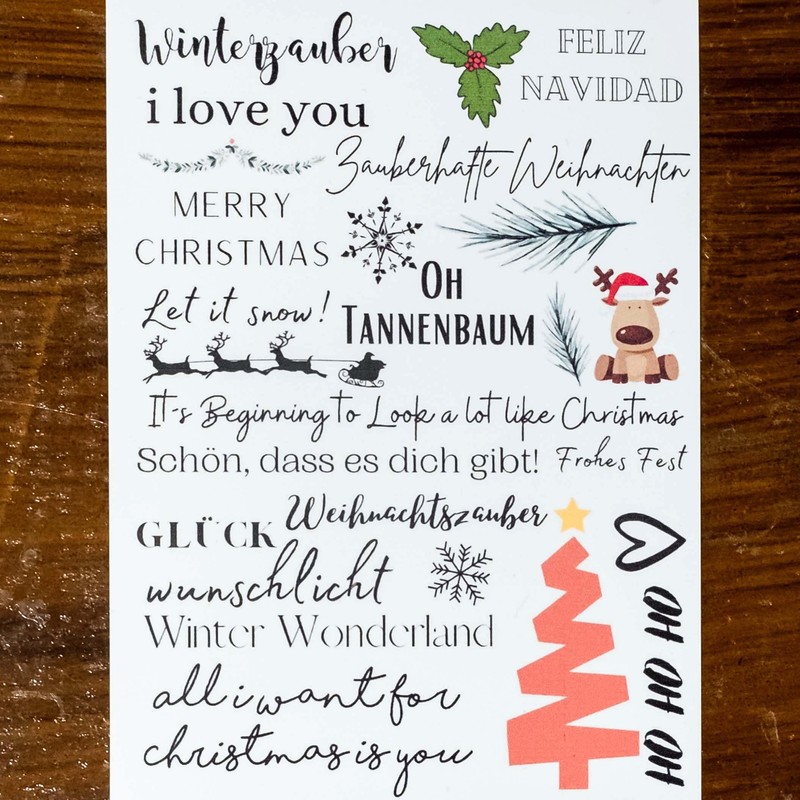 Winterzauber
FELIZ
NAVIDAD
i love you
Zauberhafte Weihnachten
MERRY
CHRISTMAS
OH
TANNENBAUM
Let it snow!
It's Beginning to Look a lot like Christmas
Schön, dass es dich gibt!
Frohes Fest
Weihnachtszauber
GLÜCK
wunschlicht
Winter Wonderland
all i want for
christmas is you
HO HO HO